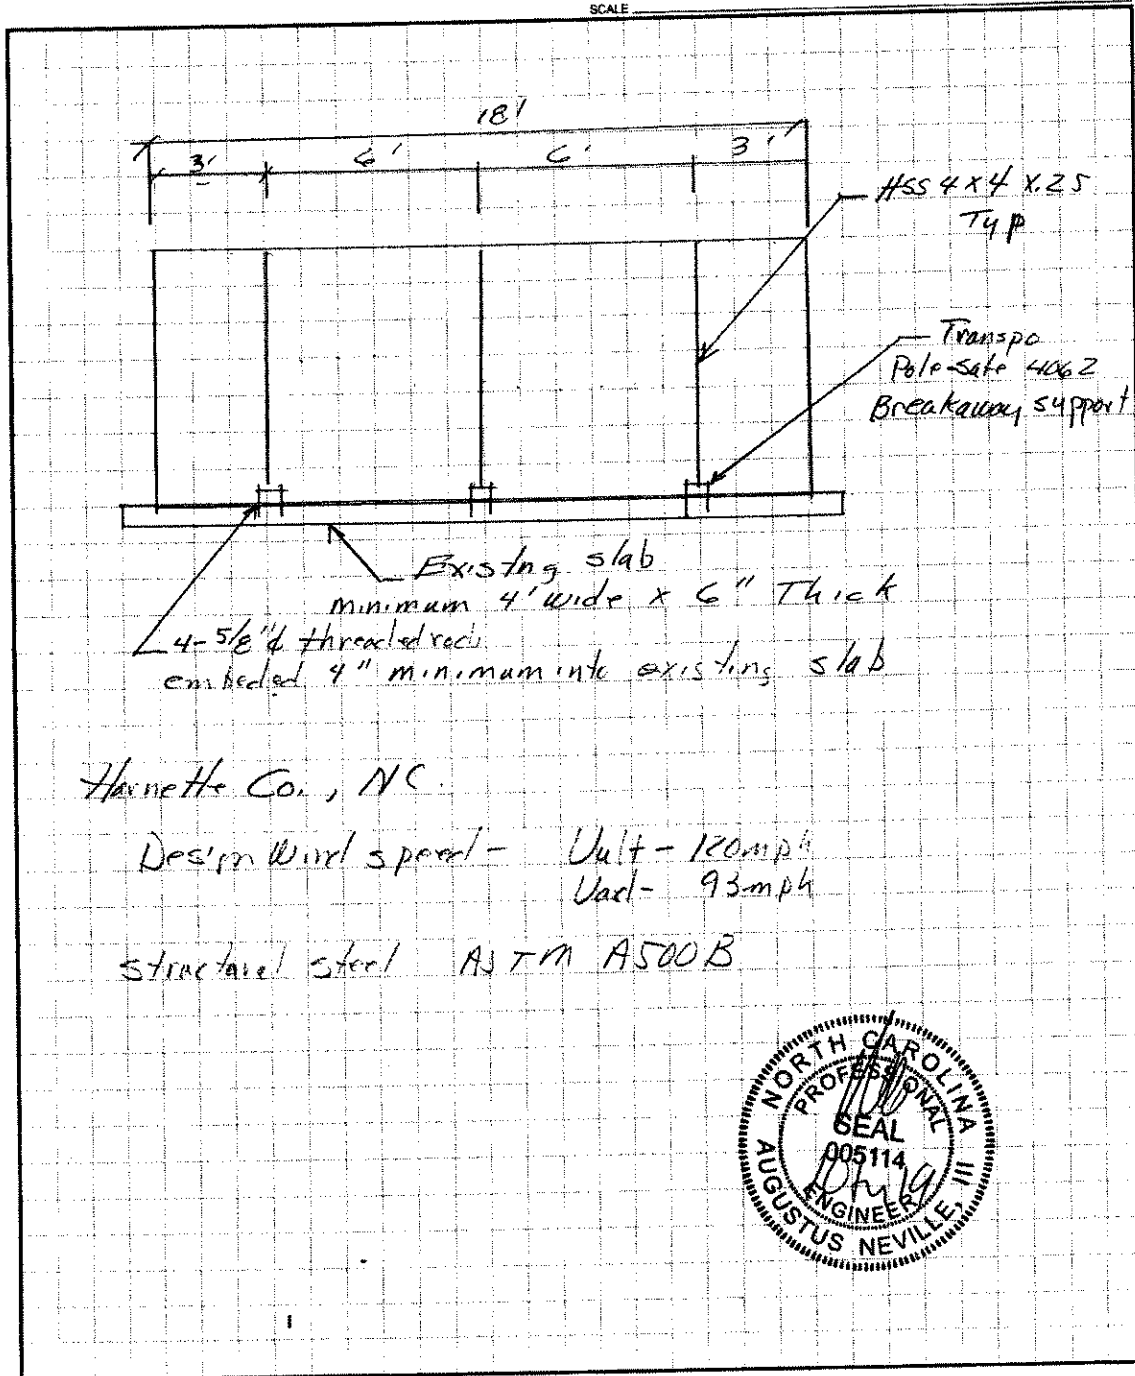 SCALE
18'
3' 6' 6' 3'
HSS 4 x 4 x .25
Typ
Transpo
Pole-Safe 4062
Breakaway support
Existing slab
minimum 4' wide x 6" Thick
4-5/8"ϕ threaded rods
embeded 4" minimum into existing slab
Harnette Co., NC.
Design Wind speed - Vult - 120mph
Vasd - 93mph
structural steel ASTM A500B
NORTH CAROLINA
PROFESSIONAL
SEAL
005114
ENGINEER
AUGUSTUS NEVILLE, III